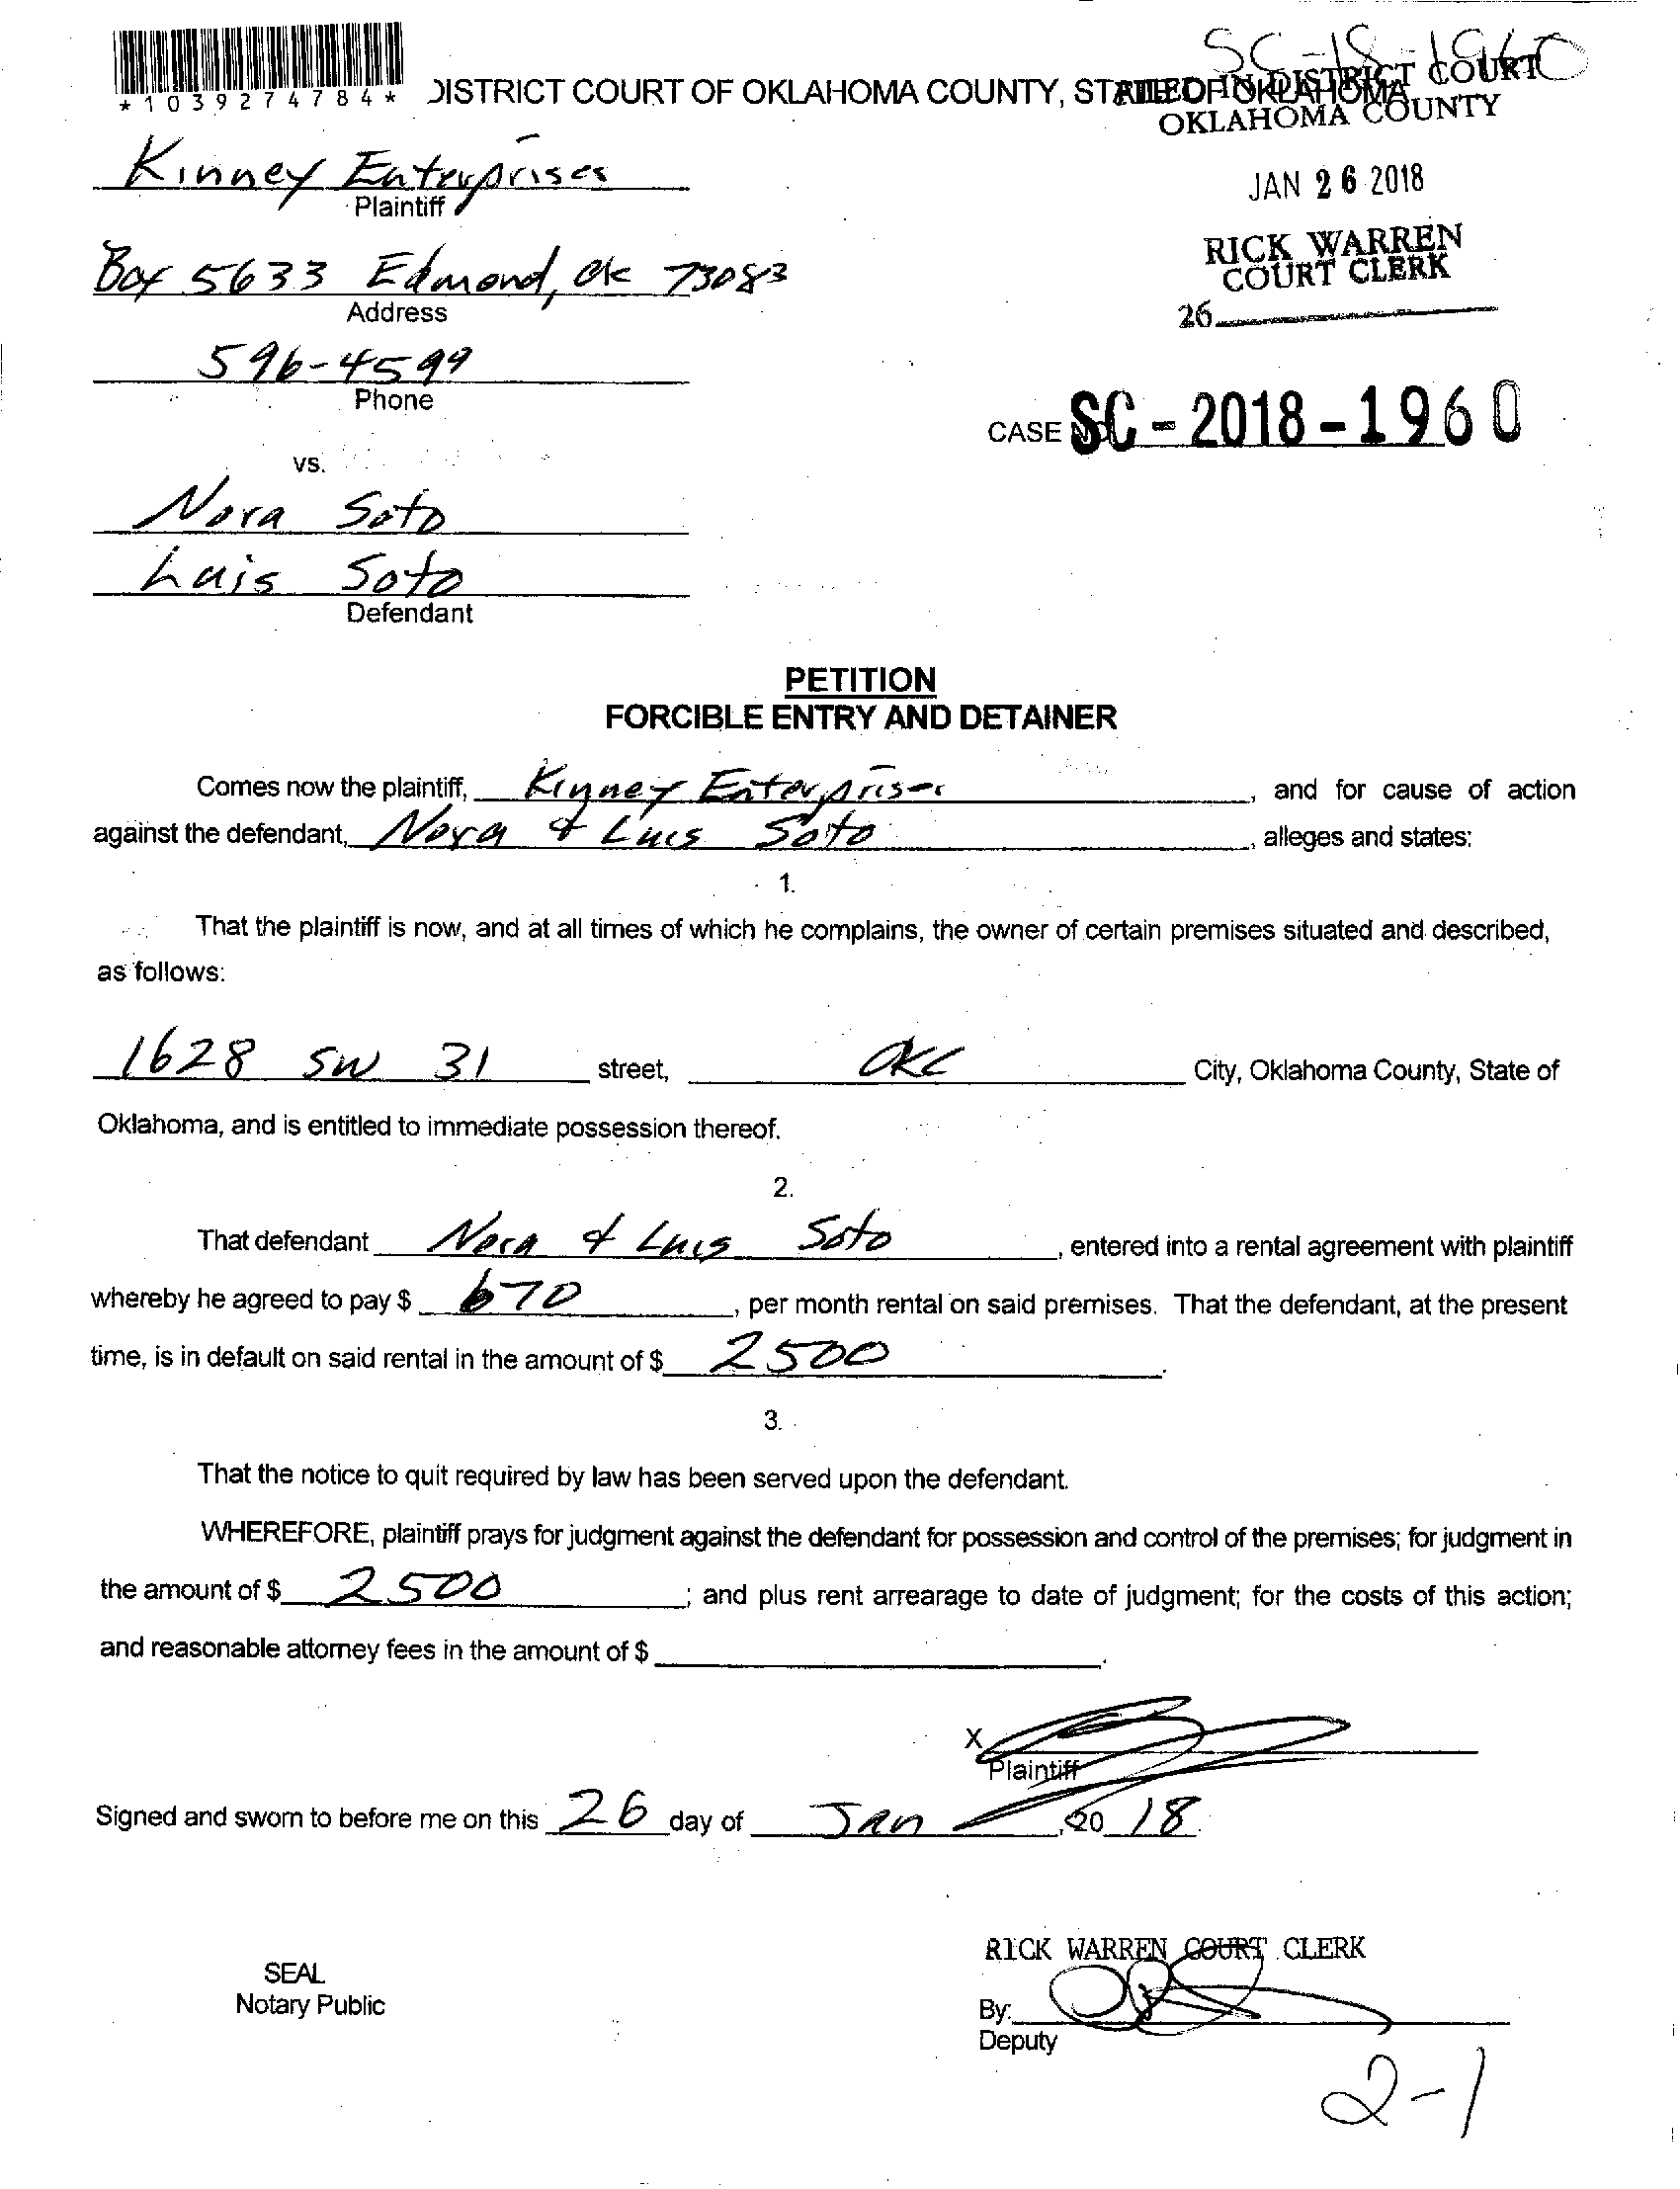 SC-18-1960
*1039274784* DISTRICT COURT OF OKLAHOMA COUNTY, STATE OF OKLAHOMA
FILED IN DISTRICT COURT
OKLAHOMA COUNTY
Kinney Enterprises
Plaintiff
JAN 26 2018
RICK WARREN
COURT CLERK
26
Box 5633 Edmond, Ok 73083
Address
596-4599
Phone
CASE NO. SC-2018-1960
vs.
Nora Soto
Luis Soto
Defendant
PETITION
FORCIBLE ENTRY AND DETAINER
Comes now the plaintiff, Kinney Enterprises, and for cause of action
against the defendant, Nora & Luis Soto, alleges and states:
1.
That the plaintiff is now, and at all times of which he complains, the owner of certain premises situated and described,
as follows:
1628 SW 31 street, OKC City, Oklahoma County, State of
Oklahoma, and is entitled to immediate possession thereof.
2.
That defendant Nora & Luis Soto, entered into a rental agreement with plaintiff
whereby he agreed to pay $ 670, per month rental on said premises. That the defendant, at the present
time, is in default on said rental in the amount of $ 2500.
3.
That the notice to quit required by law has been served upon the defendant.
WHEREFORE, plaintiff prays for judgment against the defendant for possession and control of the premises; for judgment in
the amount of $ 2500; and plus rent arrearage to date of judgment; for the costs of this action;
and reasonable attorney fees in the amount of $ .
X
Plaintiff
Signed and sworn to before me on this 26 day of Jan, 20 18.
RICK WARREN COURT CLERK
SEAL
Notary Public
By:
Deputy
2-1